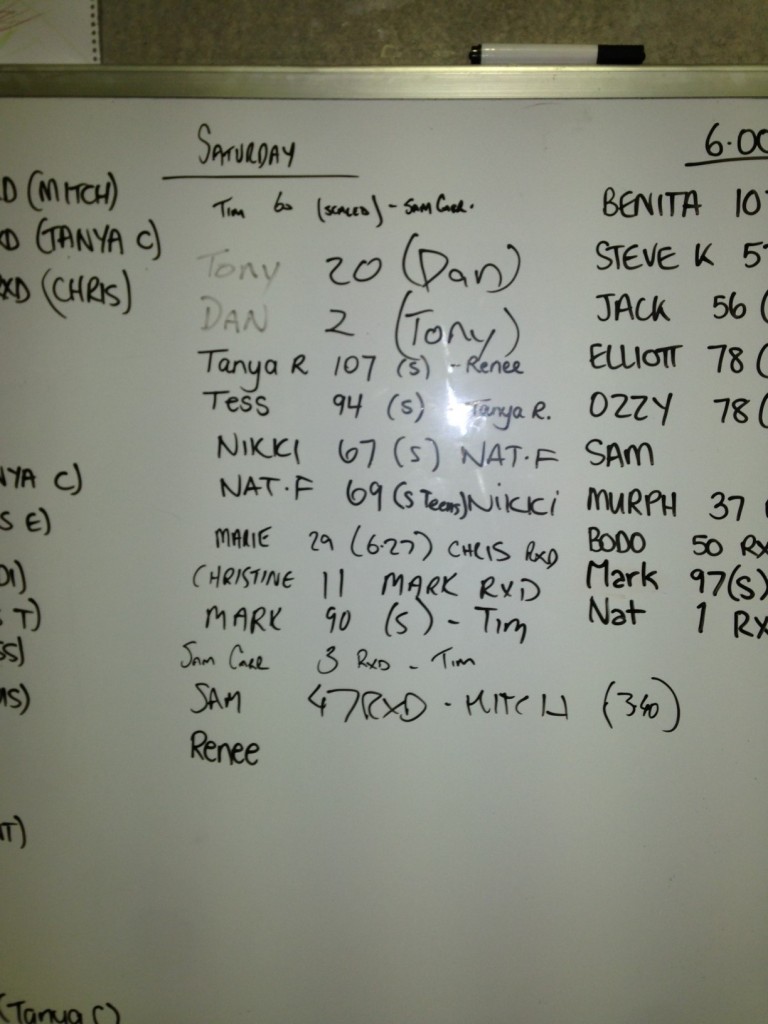 D (MITCH)
D (TANYA C)
RXD (CHRIS)
NYA C)
S E)
T)
SS)
MS)
T)
(Tanya C)
SATURDAY
Tim 60 (SCALED) - SAM CARR.
Tony 20 (Dan)
DAN 2 (Tony)
Tanya R 107 (S) - Renee
Tess 94 (S) - Tanya R.
NIKKI 67 (S) NAT.F
NAT.F 69 (S Teens) NIKKI
MARIE 29 (6.27) CHRIS RXD
CHRISTINE 11 MARK RXD
MARK 90 (S) - Tim
Sam Carr 3 RXD - Tim
SAM 47 RXD - MITCH (340)
Renee
6.00
BENITA 107
STEVE K 5
JACK 56 (
ELLIOTT 78 (
OZZY 78 (
SAM
MURPH 37
BODO 50 RX
Mark 97 (S)
Nat 1 RX